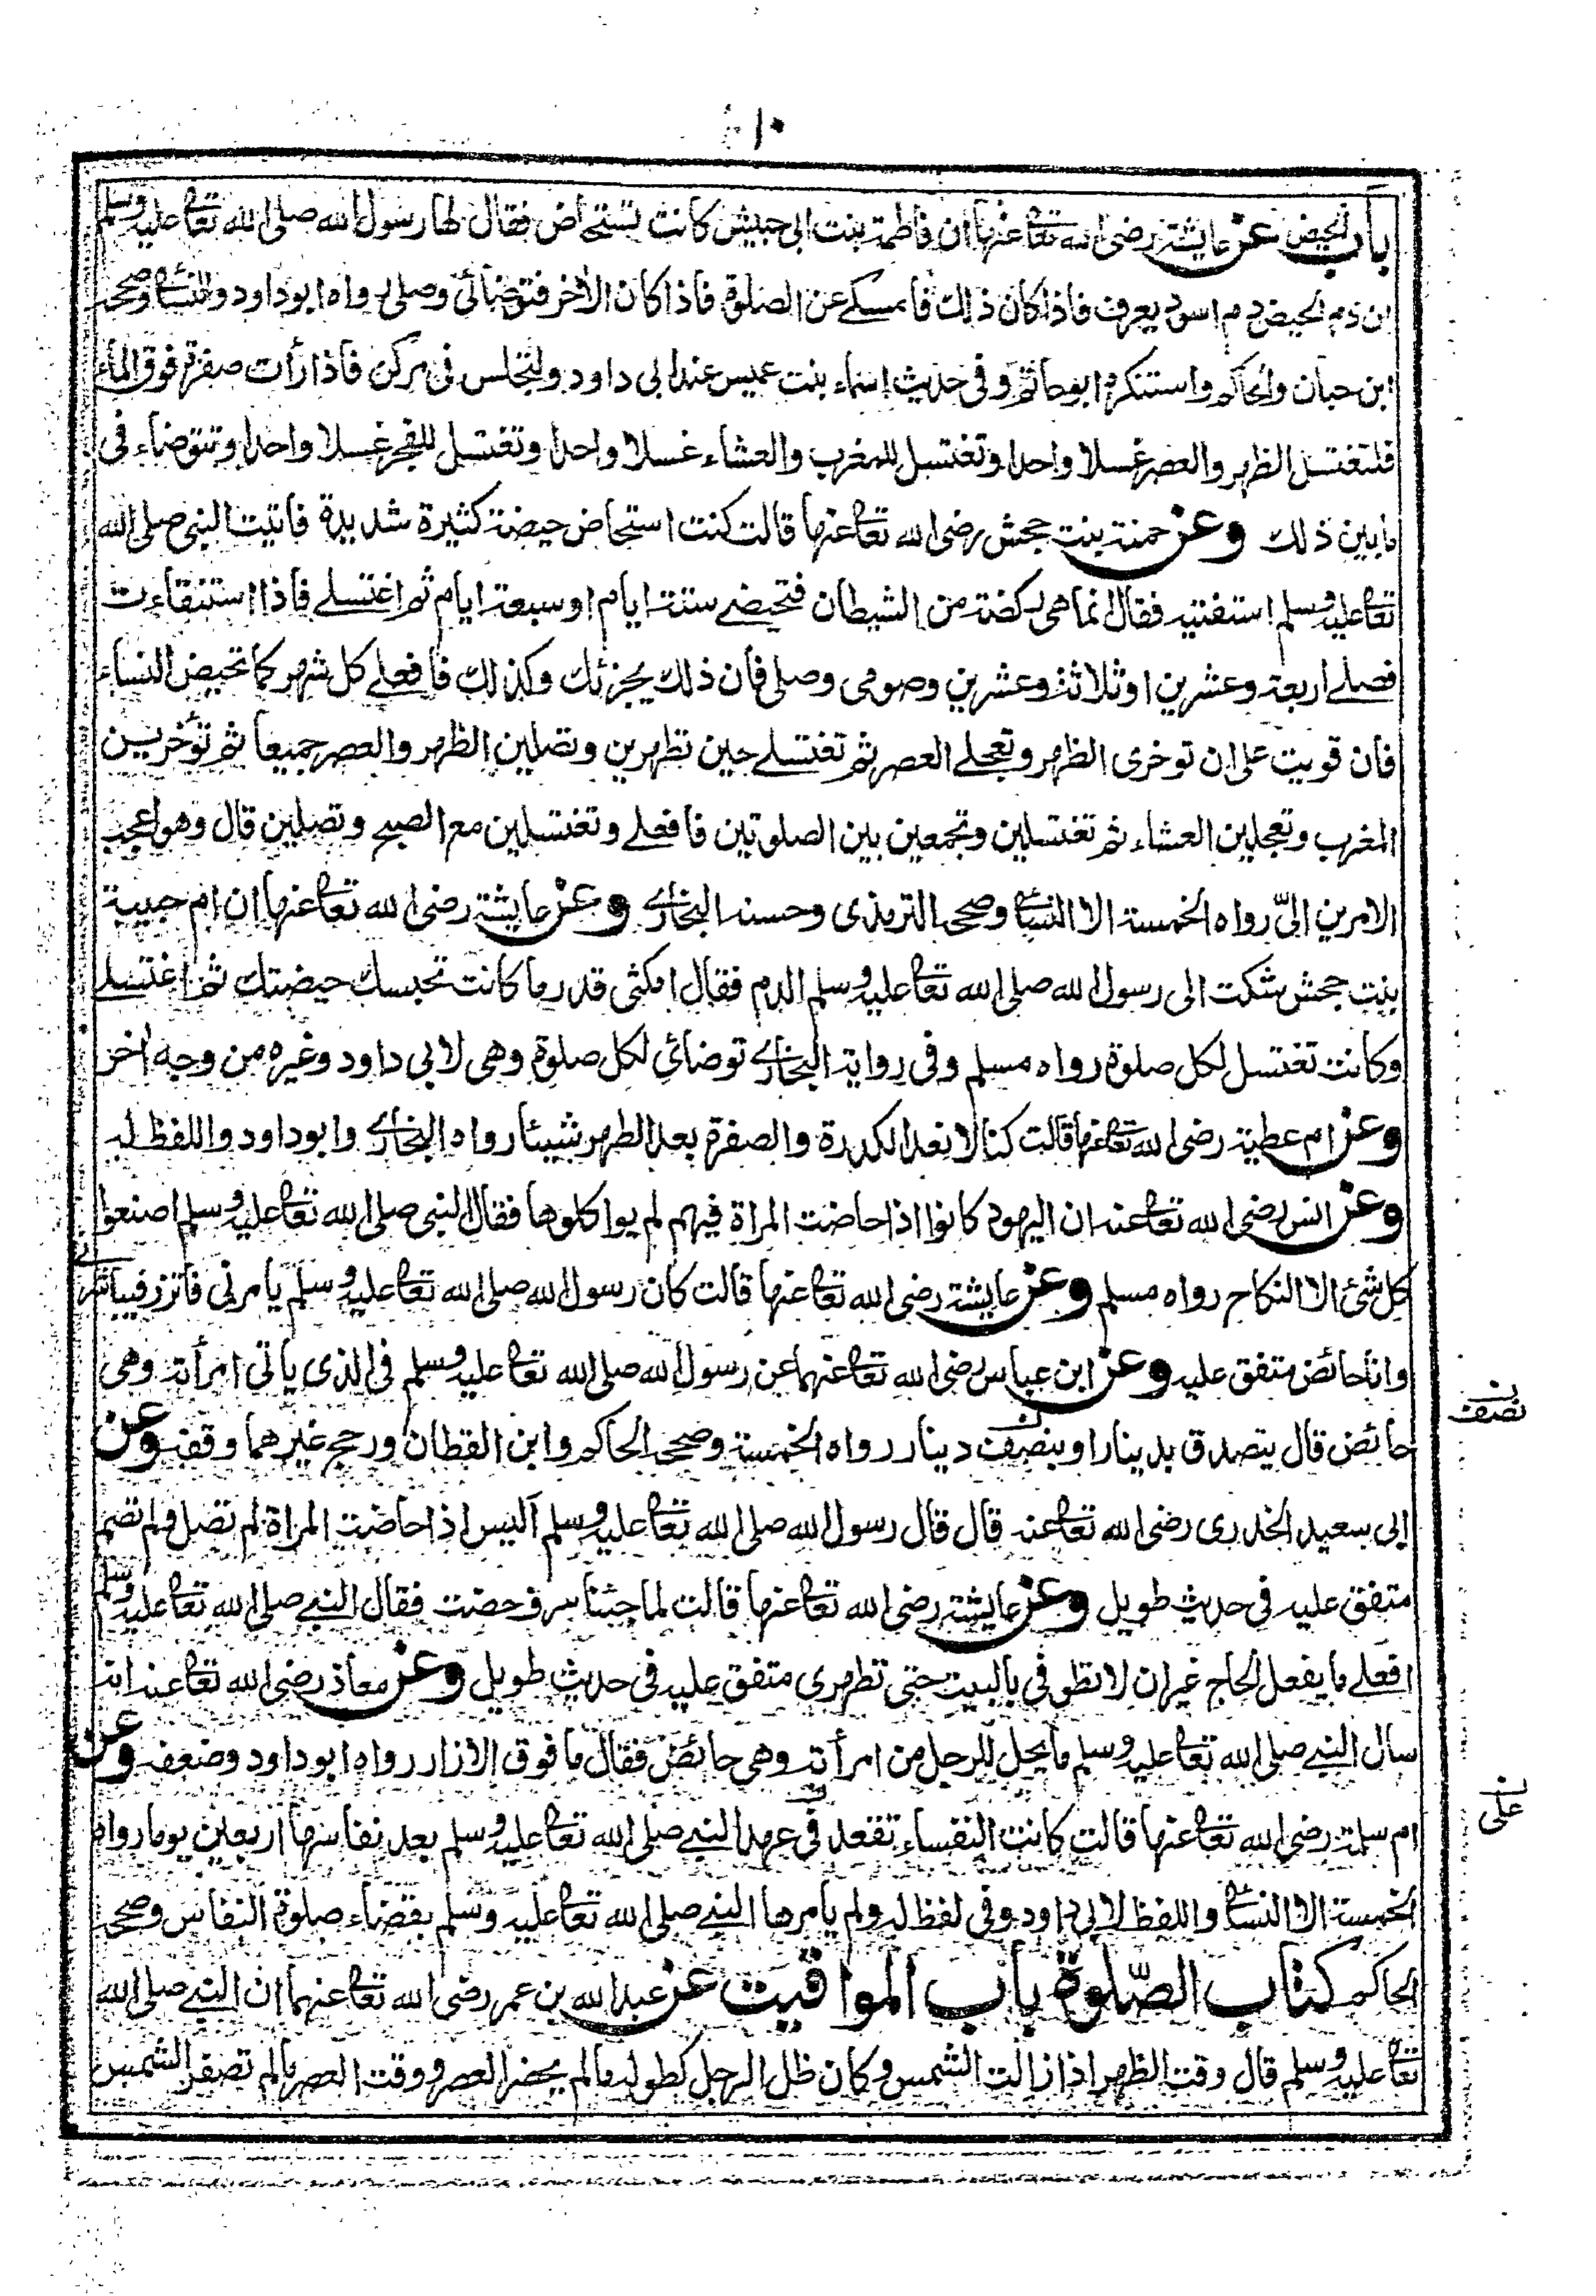 ١٠
باب الحيض عن عايشة رضى الله تعالى عنها ان فاطمة بنت ابى حبيش كانت تستحاض فقال لها رسول الله صلى الله تعالى عليه وسلم
ان دم الحيض دم اسود يعرف فاذا كان ذلك فامسكى عن الصلوة فاذا كان الاخر فتوضائى وصلى رواه ابوداود والنسائى وصححه
ابن حبان والحاكم واستنكره ابوحاتم وفى حديث اسماء بنت عميس عند ابى داود ولتجلس فى مركن فاذا رأت صفرة فوق الماء
فلتغتسل الظهر والعصر غسلا واحدا وتغتسل للمغرب والعشاء غسلا واحدا وتغتسل للفجر غسلا واحدا وتتوضاء فى
ما بين ذلك وعن حمنة بنت جحش رضى الله تعالى عنها قالت كنت استحاض حيضة كثيرة شديدة فاتيت النبى صلى الله
تعالى عليه وسلم استفتيه فقال انما هى ركضة من الشيطان فتحيضے ستة ايام او سبعة ايام ثم اغتسلے فاذا استنقاءت
فصلے اربعة وعشرين او ثلاثة وعشرين وصومى وصلى فان ذلك يجزئك وكذلك فافعلے كل شهر كما تحيض النساء
فان قويت على ان توخرى الظهر وتعجلے العصر ثم تغتسلے حين تطهرين وتصلين الظهر والعصر جميعا ثم تؤخرين
المغرب وتعجلين العشاء ثم تغتسلين وتجمعين بين الصلوتين فافعلے وتغتسلين مع الصبح وتصلين قال وهو اعجب
الامرين الىّ رواه الخمسة الا النسائى وصححه الترمذى وحسنه البخارے وعن عايشة رضى الله تعالى عنها ان ام حبيبة
بنت جحش شكت الى رسول الله صلى الله تعالى عليه وسلم الدم فقال امكثى قدر ما كانت تحبسك حيضتك ثم اغتسلے
وكانت تغتسل لكل صلوة رواه مسلم وفى رواية البخارے توضائى لكل صلوة وهى لابى داود وغيره من وجه اخر
وعن ام عطية رضى الله تعالى عنها قالت كنا لا نعد الكدرة والصفرة بعد الطهر شيئا رواه البخارے وابوداود واللفظ له
وعن انس رضى الله تعالى عنه ان اليهود كانوا اذا حاضت المراة فيهم لم يواكلوها فقال النبى صلى الله تعالى عليه وسلم اصنعوا
كل شئ الا النكاح رواه مسلم وعن عايشة رضى الله تعالى عنها قالت كان رسول الله صلى الله تعالى عليه وسلم يامرنى فاتزر فيباشرنے
وانا حائض متفق عليه وعن ابن عباس رضى الله تعالى عنهما عن رسول الله صلى الله تعالى عليه وسلم فى الذى ياتى امرأته وهى
حائض قال يتصدق بدينار او بنصف دينار رواه الخمسة وصححه الحاكم وابن القطان ورجح غيرهما وقفه وعن
ن نصف
ابى سعيد الخدرى رضى الله تعالى عنه قال قال رسول الله صلى الله تعالى عليه وسلم اليس اذا حاضت المراة لم تصل ولم تصم
متفق عليه فى حديث طويل وعن عايشة رضى الله تعالى عنها قالت لما جئنا سرف حضت فقال النبے صلى الله تعالى عليه وسلم
افعلے ما يفعل الحاج غير ان لا تطوفى بالبيت حتى تطهرى متفق عليه فى حديث طويل وعن معاذ رضى الله تعالى عنه انه
سال النبے صلى الله تعالى عليه وسلم ما يحل للرجل من امرأته وهى حائض فقال ما فوق الازار رواه ابوداود وضعفه وعن
ام سلمة رضى الله تعالى عنها قالت كانت النفساء تقعد فى عهد النبے صلى الله تعالى عليه وسلم بعد نفاسها اربعين يوما رواه
ن على
الخمسة الا النسائى واللفظ لابى داود وفى لفظ له ولم يامرها النبے صلى الله تعالى عليه وسلم بقضاء صلوة النفاس وصححه
الحاكم كتاب الصّلوة باب المواقيت عن عبد الله بن عمر رضى الله تعالى عنهما ان النبے صلى الله
تعالى عليه وسلم قال وقت الظهر اذا زالت الشمس وكان ظل الرجل كطوله ما لم يحضر العصر ووقت العصر ما لم تصفر الشمس